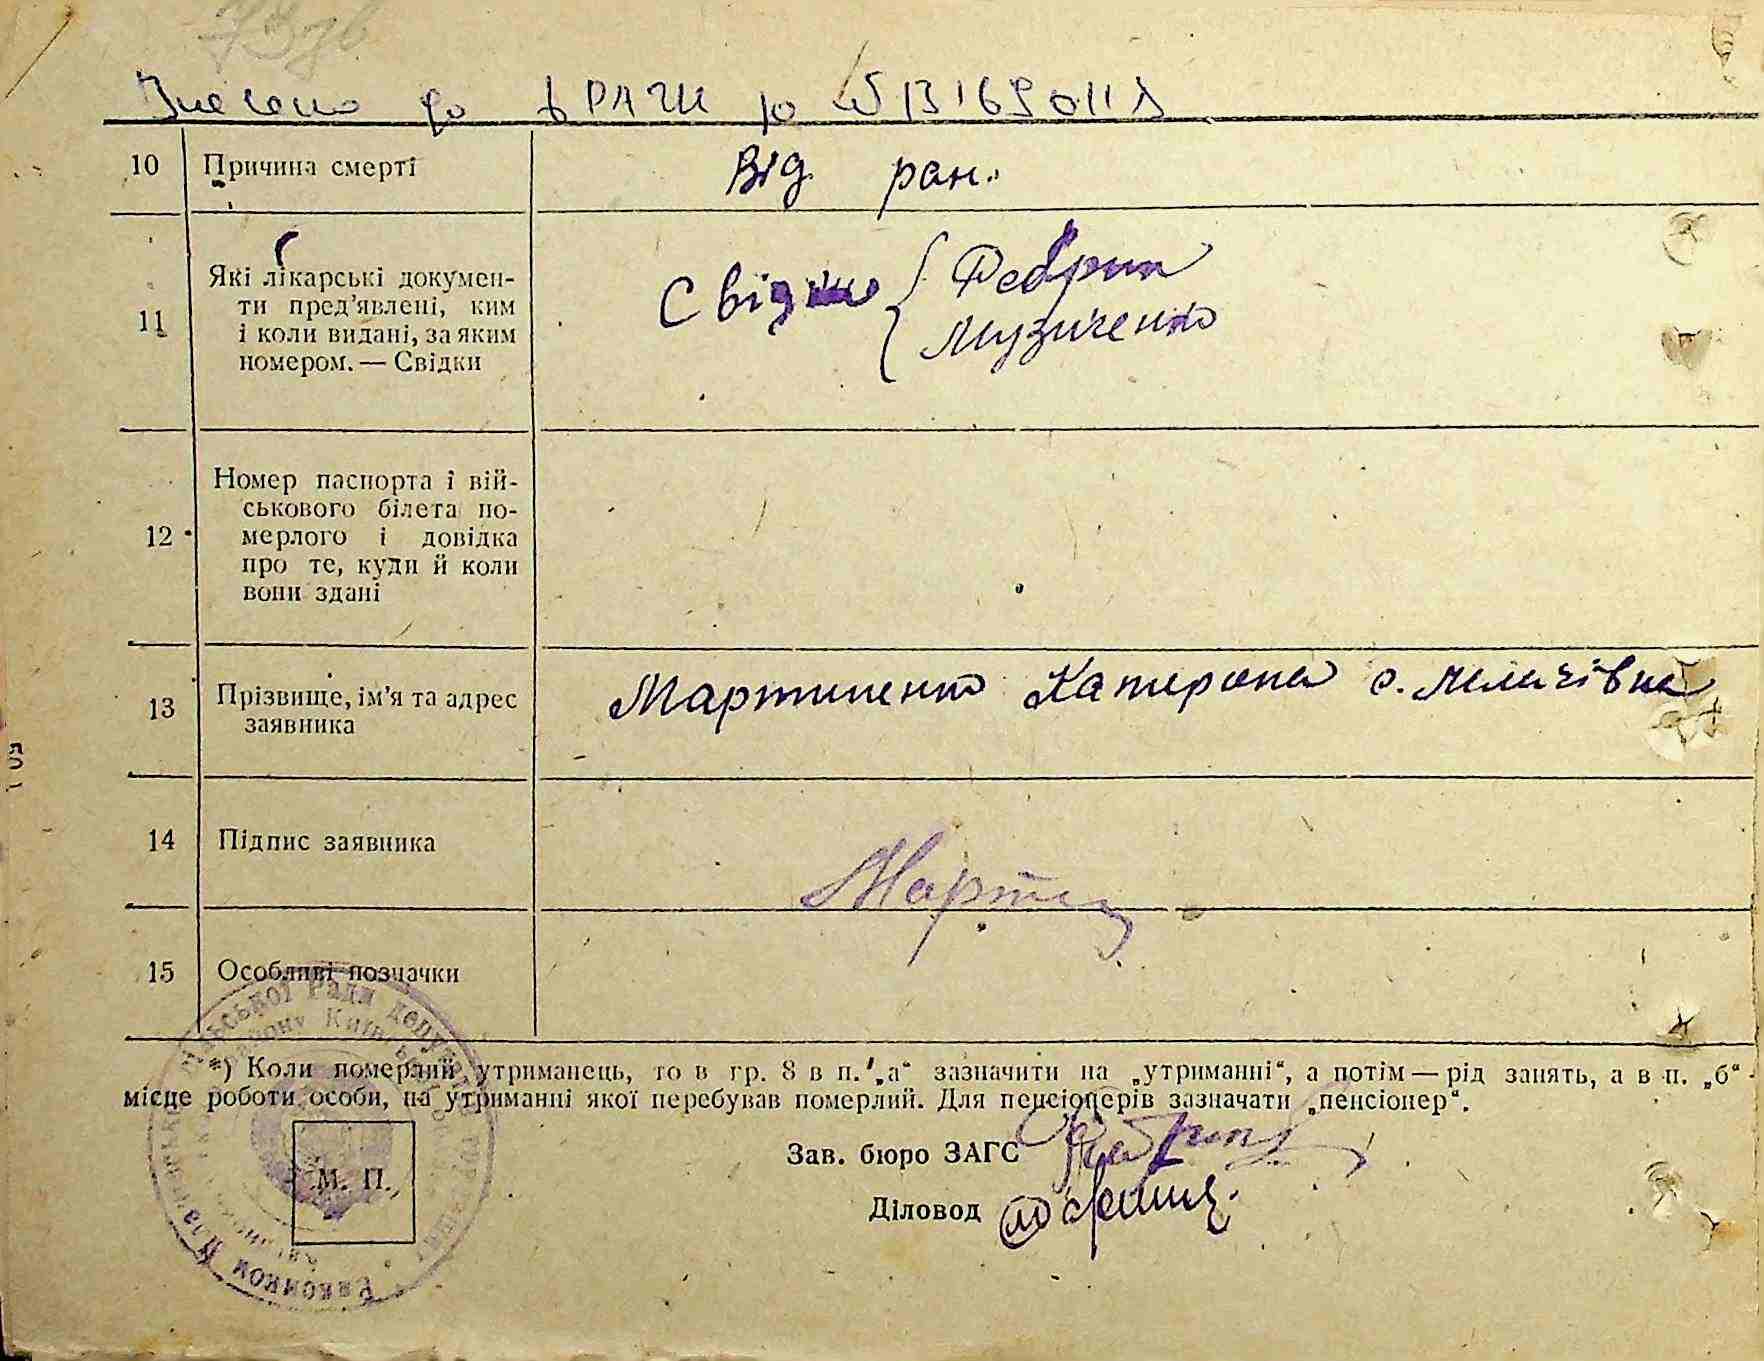 73зв
Внесено до ДРАЦС
10 Причина смерті Від ран.
11 Які лікарські докумен-
ти пред'явлені, ким
і коли видані, за яким
номером. — Свідки
Свідки { Фебрин
Музиченко
12 Номер паспорта і вій-
ськового білета по-
мерлого і довідка
про те, куди й коли
вони здані
13 Прізвище, ім'я та адрес
заявника
Мартиненко Катерина с.
14 Підпис заявника Мартин
15 Особливі позначки
*) Коли померлий утриманець, то в гр. 8 в п. „а“ зазначити на „утриманні“, а потім — рід занять, а в п. „б“
місце роботи особи, на утриманні якої перебував померлий. Для пенсіонерів зазначати „пенсіонер“.
Зав. бюро ЗАГС
Діловод
М. П.
Виконком сільської Ради депутатів трудящих
району Київської